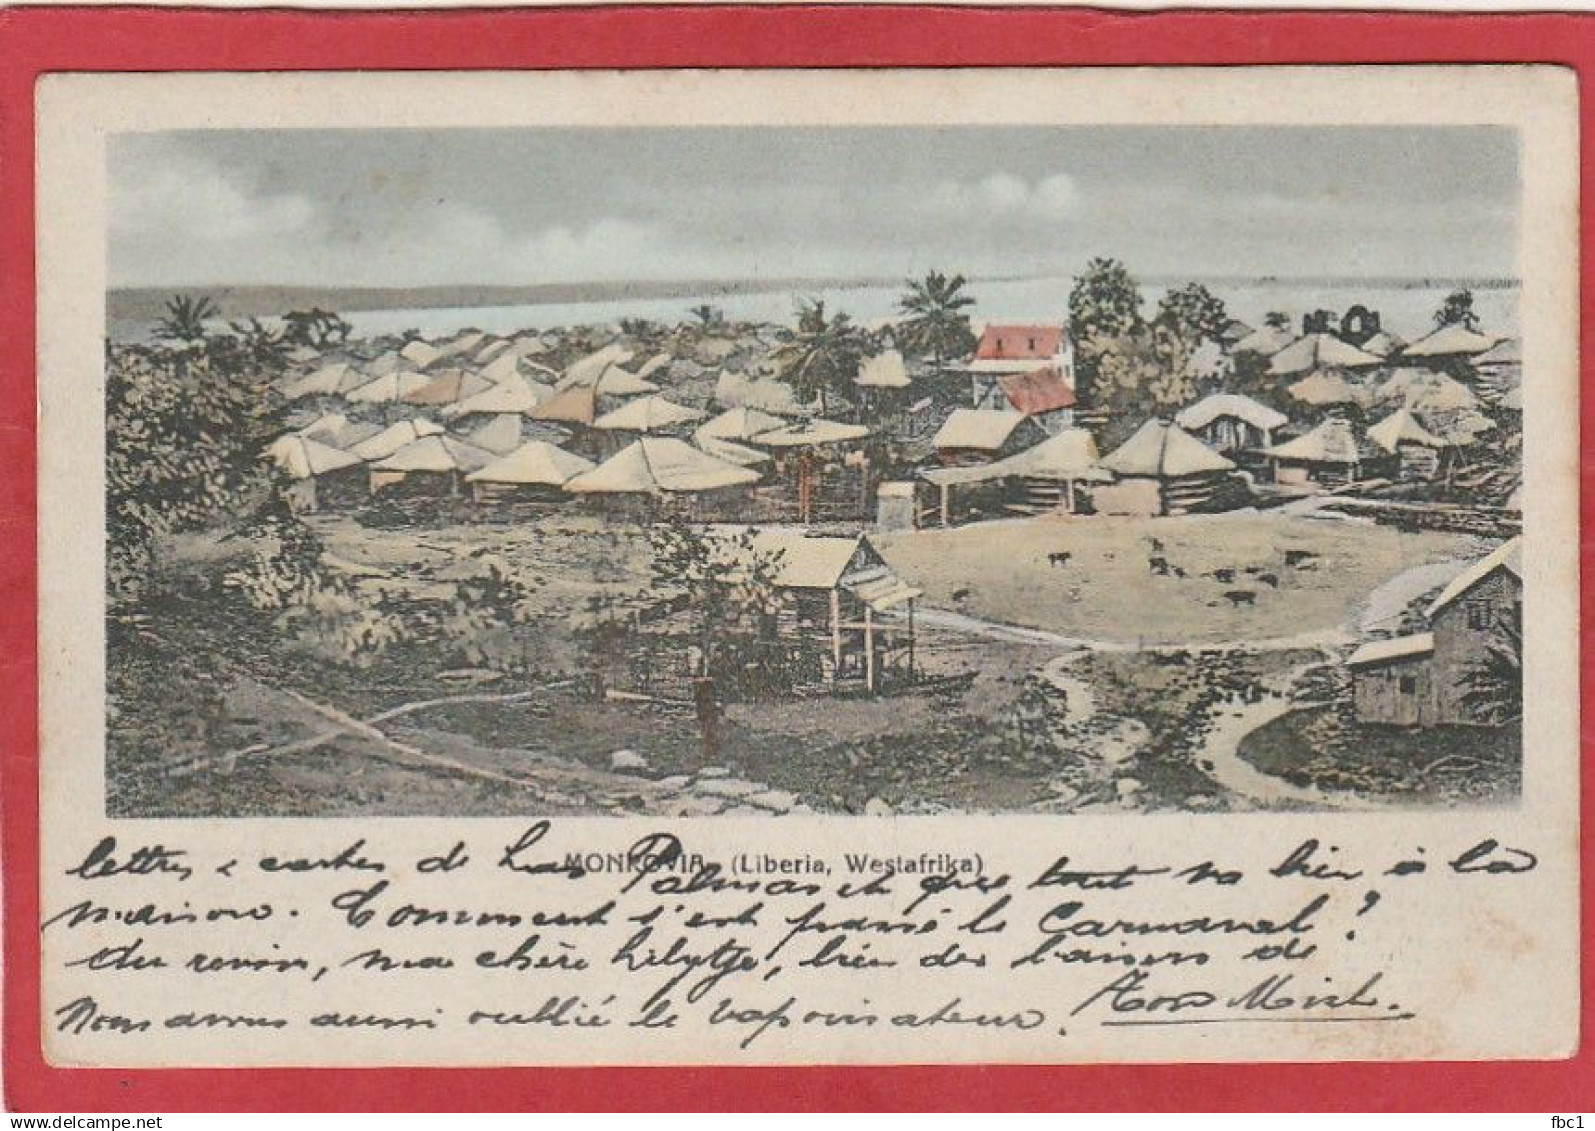 MONROVIA (Liberia, Westafrika)
lettres et cartes de Las Palmas et que tout va bien à la
maison. Comment s'est passé le Carnaval ?
Au revoir, ma chère Lilytje, bien des baisers de
Nous avons aussi oublié le vaporisateur.
www.delcampe.net
fbc1